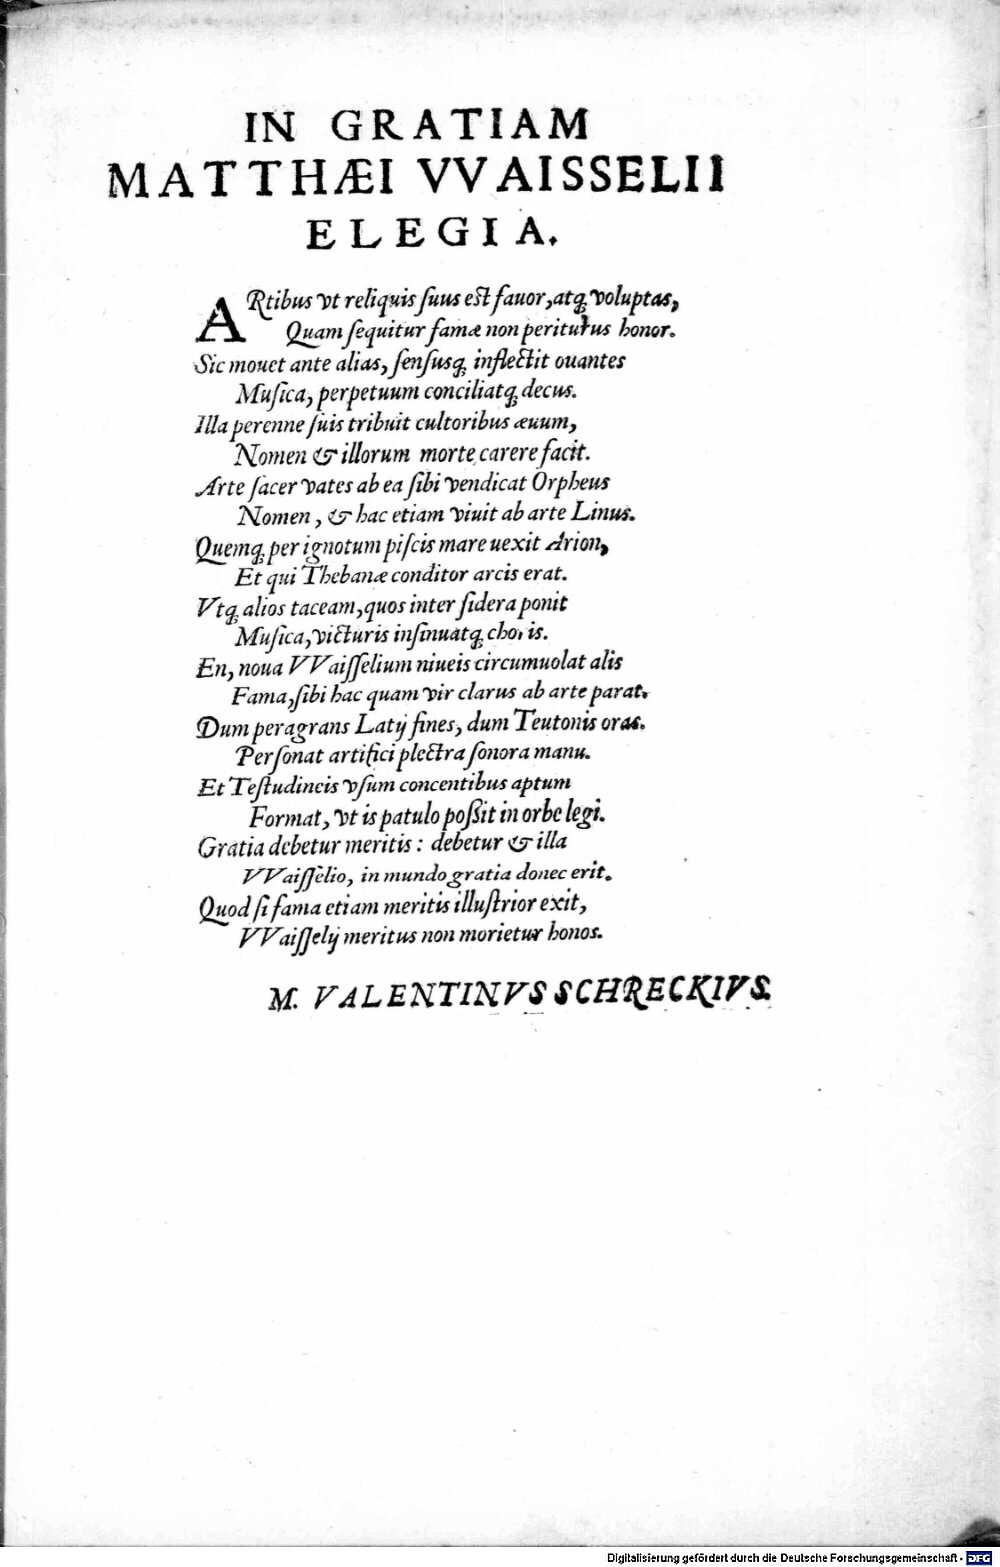 IN GRATIAM
MATTHÆI VVAISSELII
ELEGIA.
ARtibus vt reliquis ſuus eſt fauor, atq; voluptas,
Quam ſequitur famæ non periturus honor.
Sic mouet ante alias, ſenſusq; inflectit ouantes
Muſica, perpetuum conciliatq; decus.
Illa perenne ſuis tribuit cultoribus æuum,
Nomen & illorum morte carere facit.
Arte ſacer vates ab ea ſibi vendicat Orpheus
Nomen, & hac etiam viuit ab arte Linus.
Quemq; per ignotum piſcis mare uexit Arion,
Et qui Thebanæ conditor arcis erat.
Vtq; alios taceam, quos inter ſidera ponit
Muſica, victuris inſinuatq; choris.
En, noua VVaiſſelium niueis circumuolat alis
Fama, ſibi hac quam vir clarus ab arte parat.
Dum peragrans Latij fines, dum Teutonis oras.
Perſonat artifici plectra ſonora manu.
Et Teſtudineis vſum concentibus aptum
Format, vt is patulo poſſit in orbe legi.
Gratia debetur meritis: debetur & illa
VVaiſſelio, in mundo gratia donec erit.
Quod ſi fama etiam meritis illuſtrior exit,
VVaiſſelij meritus non morietur honos.
M. VALENTINVS SCHRECKIVS.
Digitalisierung gefördert durch die Deutsche Forschungsgemeinschaft - DFG